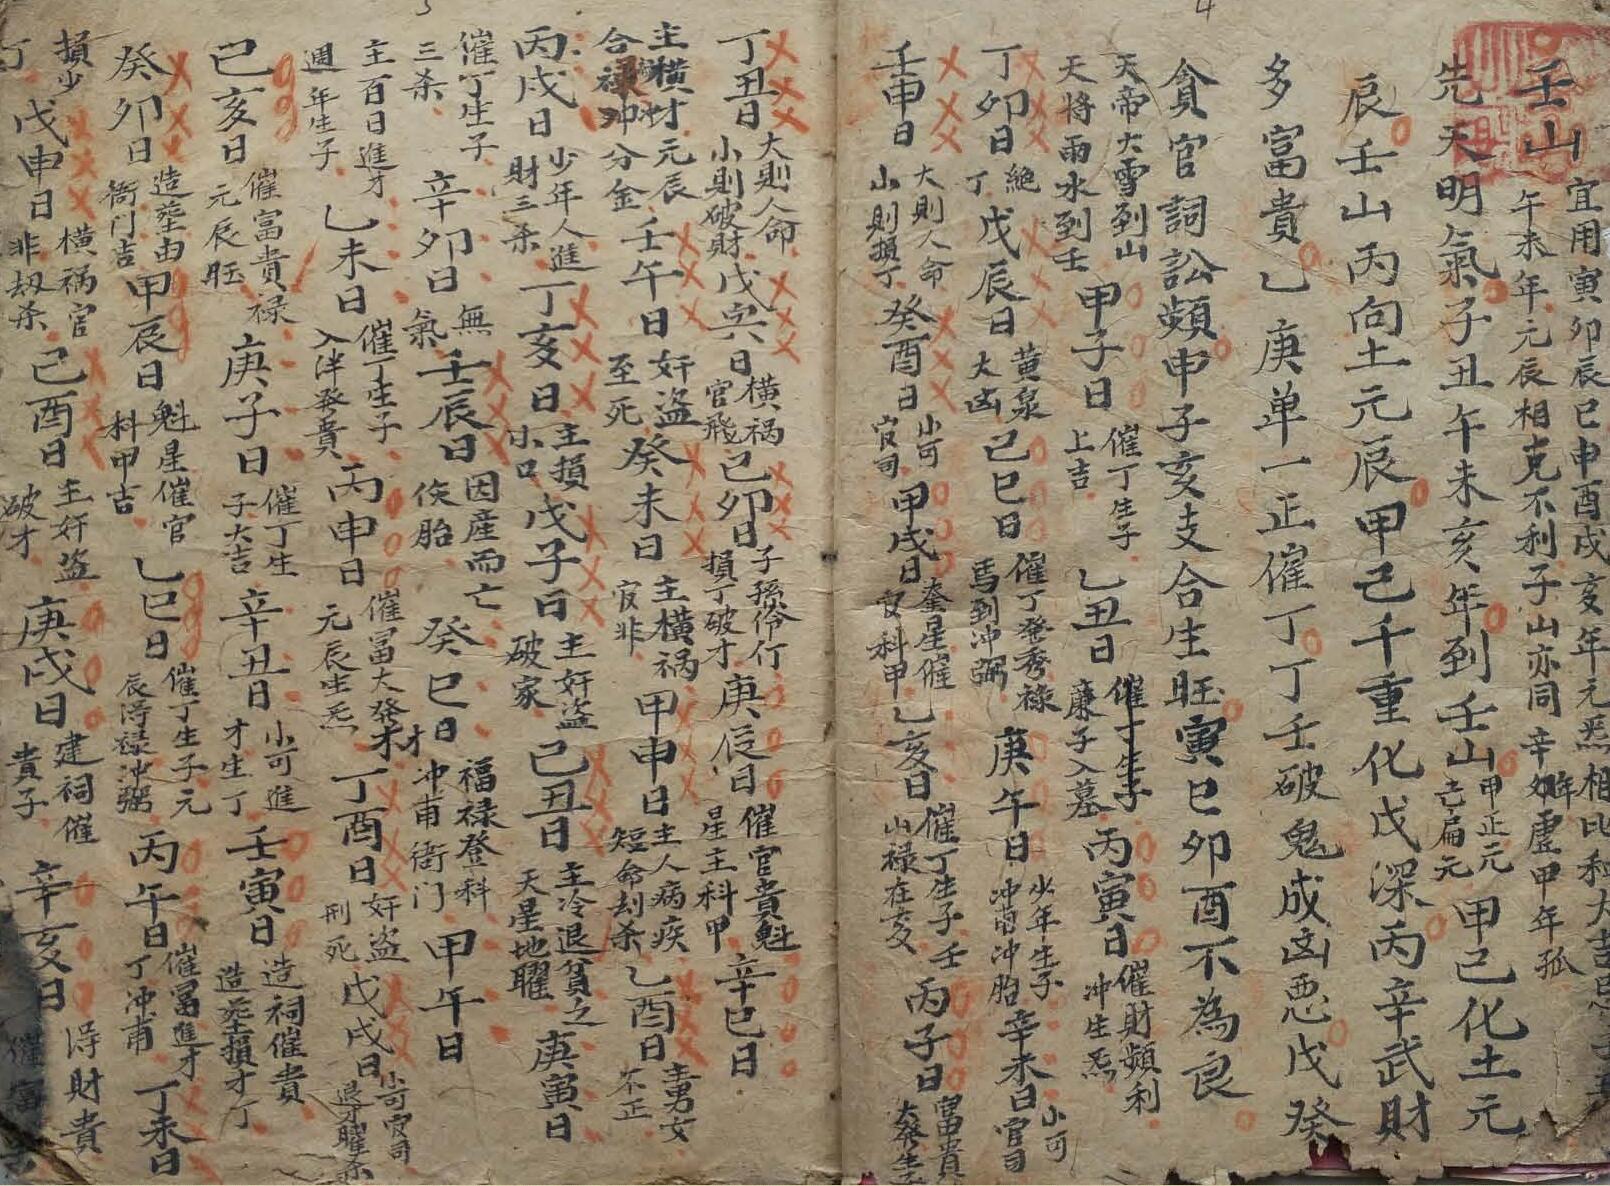 4
壬山
宜用寅卯辰巳申酉戌亥年元
相比和大吉
午未年元辰相克不利子山亦同
甲年孤
先天明氣子丑午未亥年到壬山
甲正元
元
甲己化土元
辰壬山丙向土元辰甲己千重化戊深丙辛武財
多富貴乙庚单一正催丁丁壬破鬼成凶惡戊癸
貪官詞訟頻申子亥支合生旺寅巳卯酉不為良
天帝大雪到山
天将雨水到壬
甲子日
催丁生子
上吉
乙丑日
催丁生子
廉子入墓
丙寅日
催財頻利
冲生炁
丁卯日
絶
丁
戊辰日
黄泉
大凶
己巳日
催丁発秀禄
馬到冲弼
庚午日
少年生子
冲胎
辛未日
小可
官司
壬申日
大則人命
小則損丁
癸酉日
小可
官司
甲戌日
奎星催
官科甲
乙亥日
催丁生子壬
山禄在亥
丙子日
富貴
大発生
5
丁丑日
大則人命
小則破財
戊寅日
横祸
官飛
己卯日
子孫伶仃
損丁破才
庚辰日
催官貴魁
星主科甲
辛巳日
主横材元辰
合禄冲分金
壬午日
奸盗
至死
癸未日
主横祸
官非
甲申日
主人病疾
短命刦杀
乙酉日
主男女
不正
丙戌日
少年人進
財三杀
丁亥日
主損
小口
戊子日
主奸盗
破家
己丑日
主冷退貧之
天星地曜
庚寅日
催丁生子
三杀
辛卯日
無
氣
壬辰日
因産而亡
胎
癸巳日
福禄登科
才冲甫衙门
甲午日
主百日進才
週年生子
乙未日
催丁生子
入泮発貴
丙申日
催富大発才
元辰生炁
丁酉日
奸盗
刑死
戊戌日
小可官司
退才曜杀
己亥日
催富貴禄
元辰旺
庚子日
催丁生
子大吉
辛丑日
小可進
才生丁
壬寅日
造祠催貴
造塟損才丁
癸卯日
造塟由
衙门吉
甲辰日
魁星催官
科甲吉
乙巳日
催丁生子元
辰得禄冲弼
丙午日
催富進才
丁冲甫
丁未日
得財貴
損少
丁
戊申日
横祸官
非刼杀
己酉日
主奸盗
破才
庚戌日
建祠催
貴子
辛亥日
催富
吉